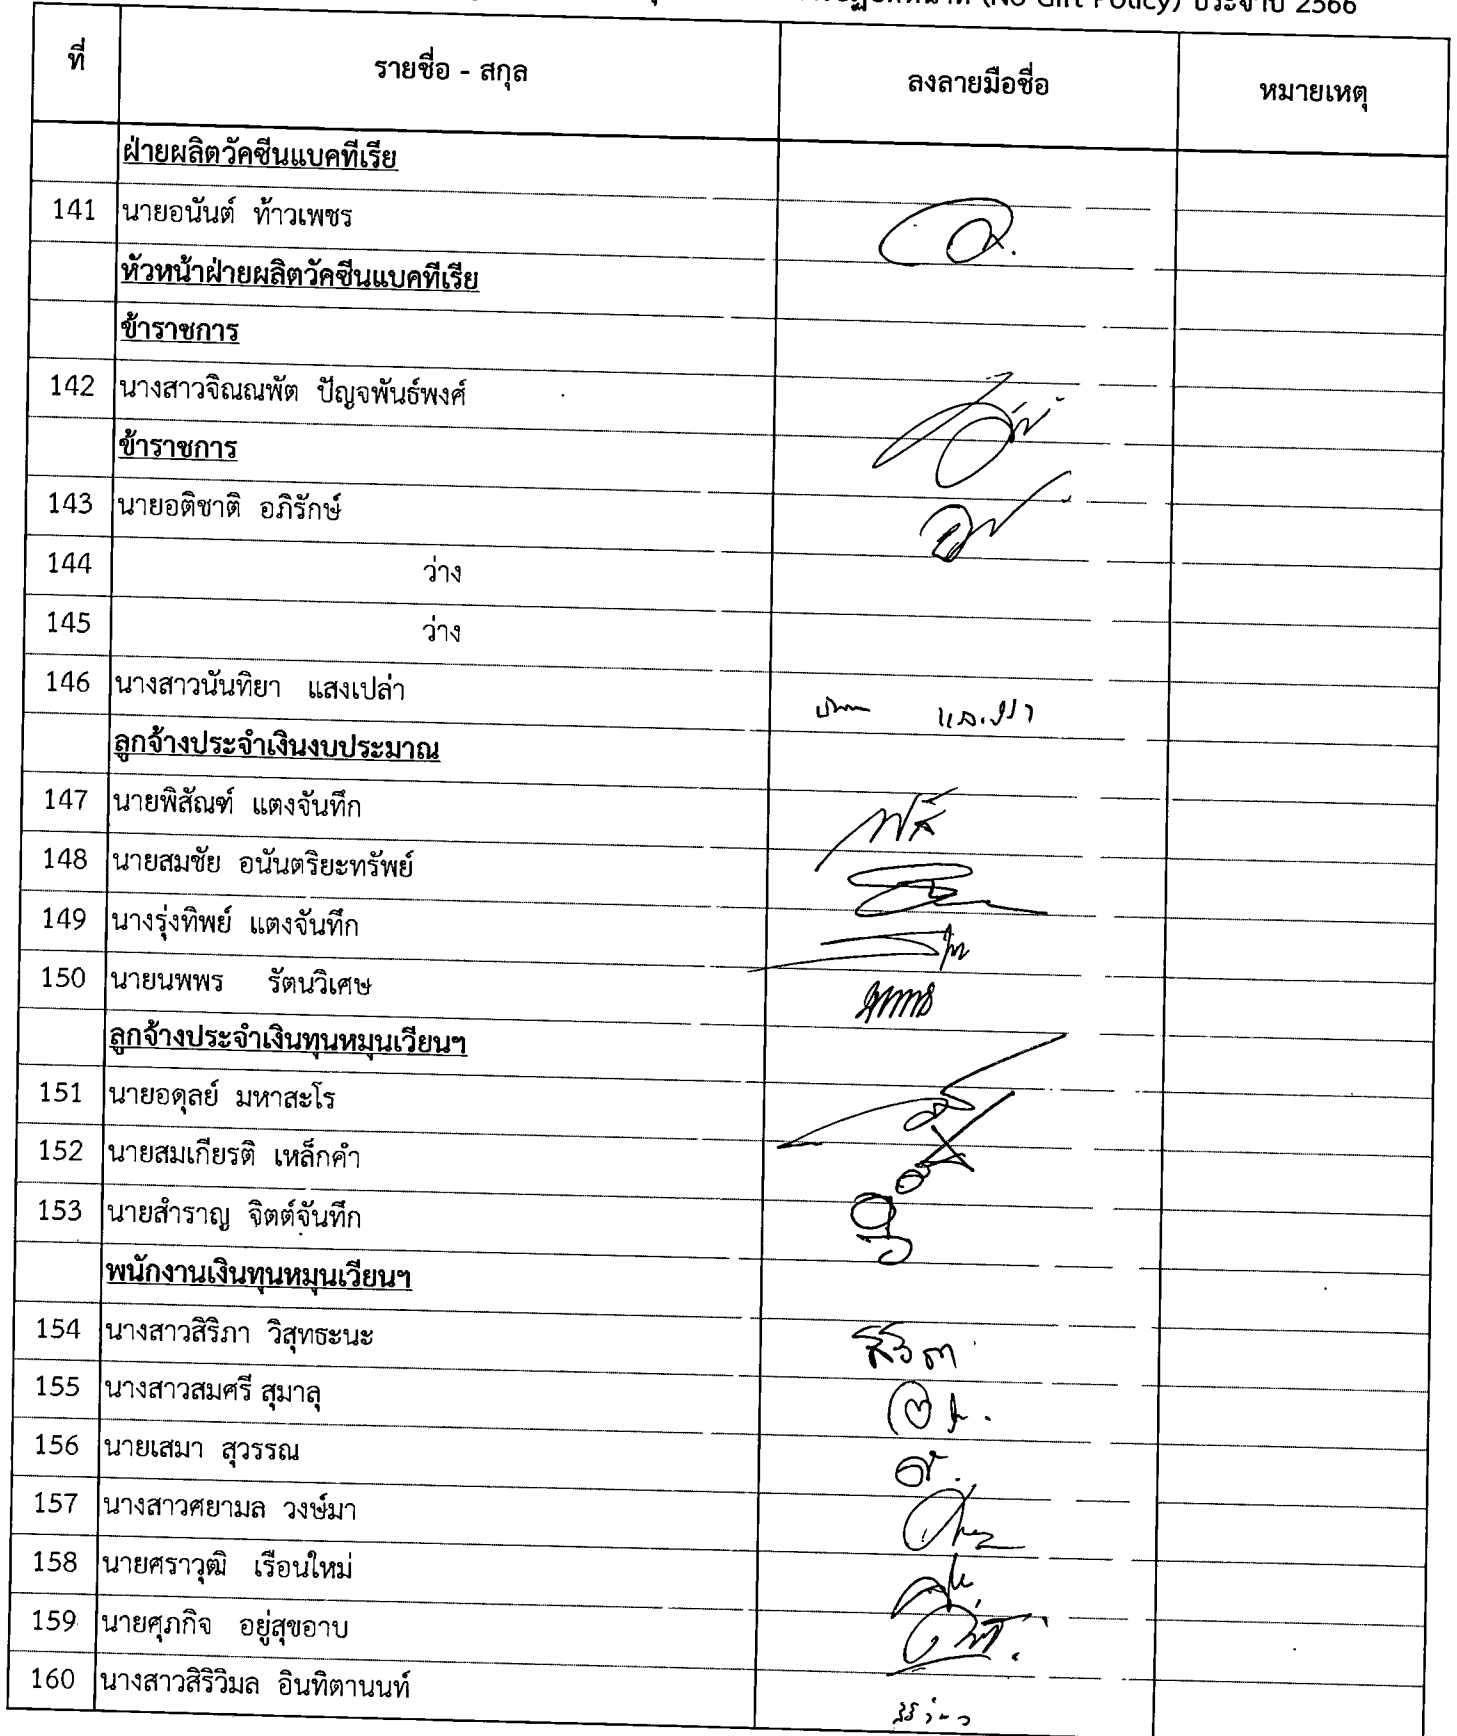 (No Gift Policy) ประจำปี 2566
ที่ รายชื่อ - สกุล ลงลายมือชื่อ หมายเหตุ
ฝ่ายผลิตวัคซีนแบคทีเรีย
141 นายอนันต์ ท้าวเพชร
หัวหน้าฝ่ายผลิตวัคซีนแบคทีเรีย
ข้าราชการ
142 นางสาวจิณณพัต ปัญจพันธ์พงศ์
ข้าราชการ
143 นายอติชาติ อภิรักษ์
144 ว่าง
145 ว่าง
146 นางสาวนันทิยา แสงเปล่า
ลูกจ้างประจำเงินงบประมาณ
147 นายพิสัณฑ์ แตงจันทึก
148 นายสมชัย อนันตริยะทรัพย์
149 นางรุ่งทิพย์ แตงจันทึก
150 นายนพพร รัตนวิเศษ
ลูกจ้างประจำเงินทุนหมุนเวียนฯ
151 นายอดุลย์ มหาสะโร
152 นายสมเกียรติ เหล็กคำ
153 นายสำราญ จิตต์จันทึก
พนักงานเงินทุนหมุนเวียนฯ
154 นางสาวสิริภา วิสุทธะนะ
155 นางสาวสมศรี สุมาลุ
156 นายเสมา สุวรรณ
157 นางสาวศยามล วงษ์มา
158 นายศราวุฒิ เรือนใหม่
159 นายศุภกิจ อยู่สุขอาบ
160 นางสาวสิริวิมล อินทิตานนท์